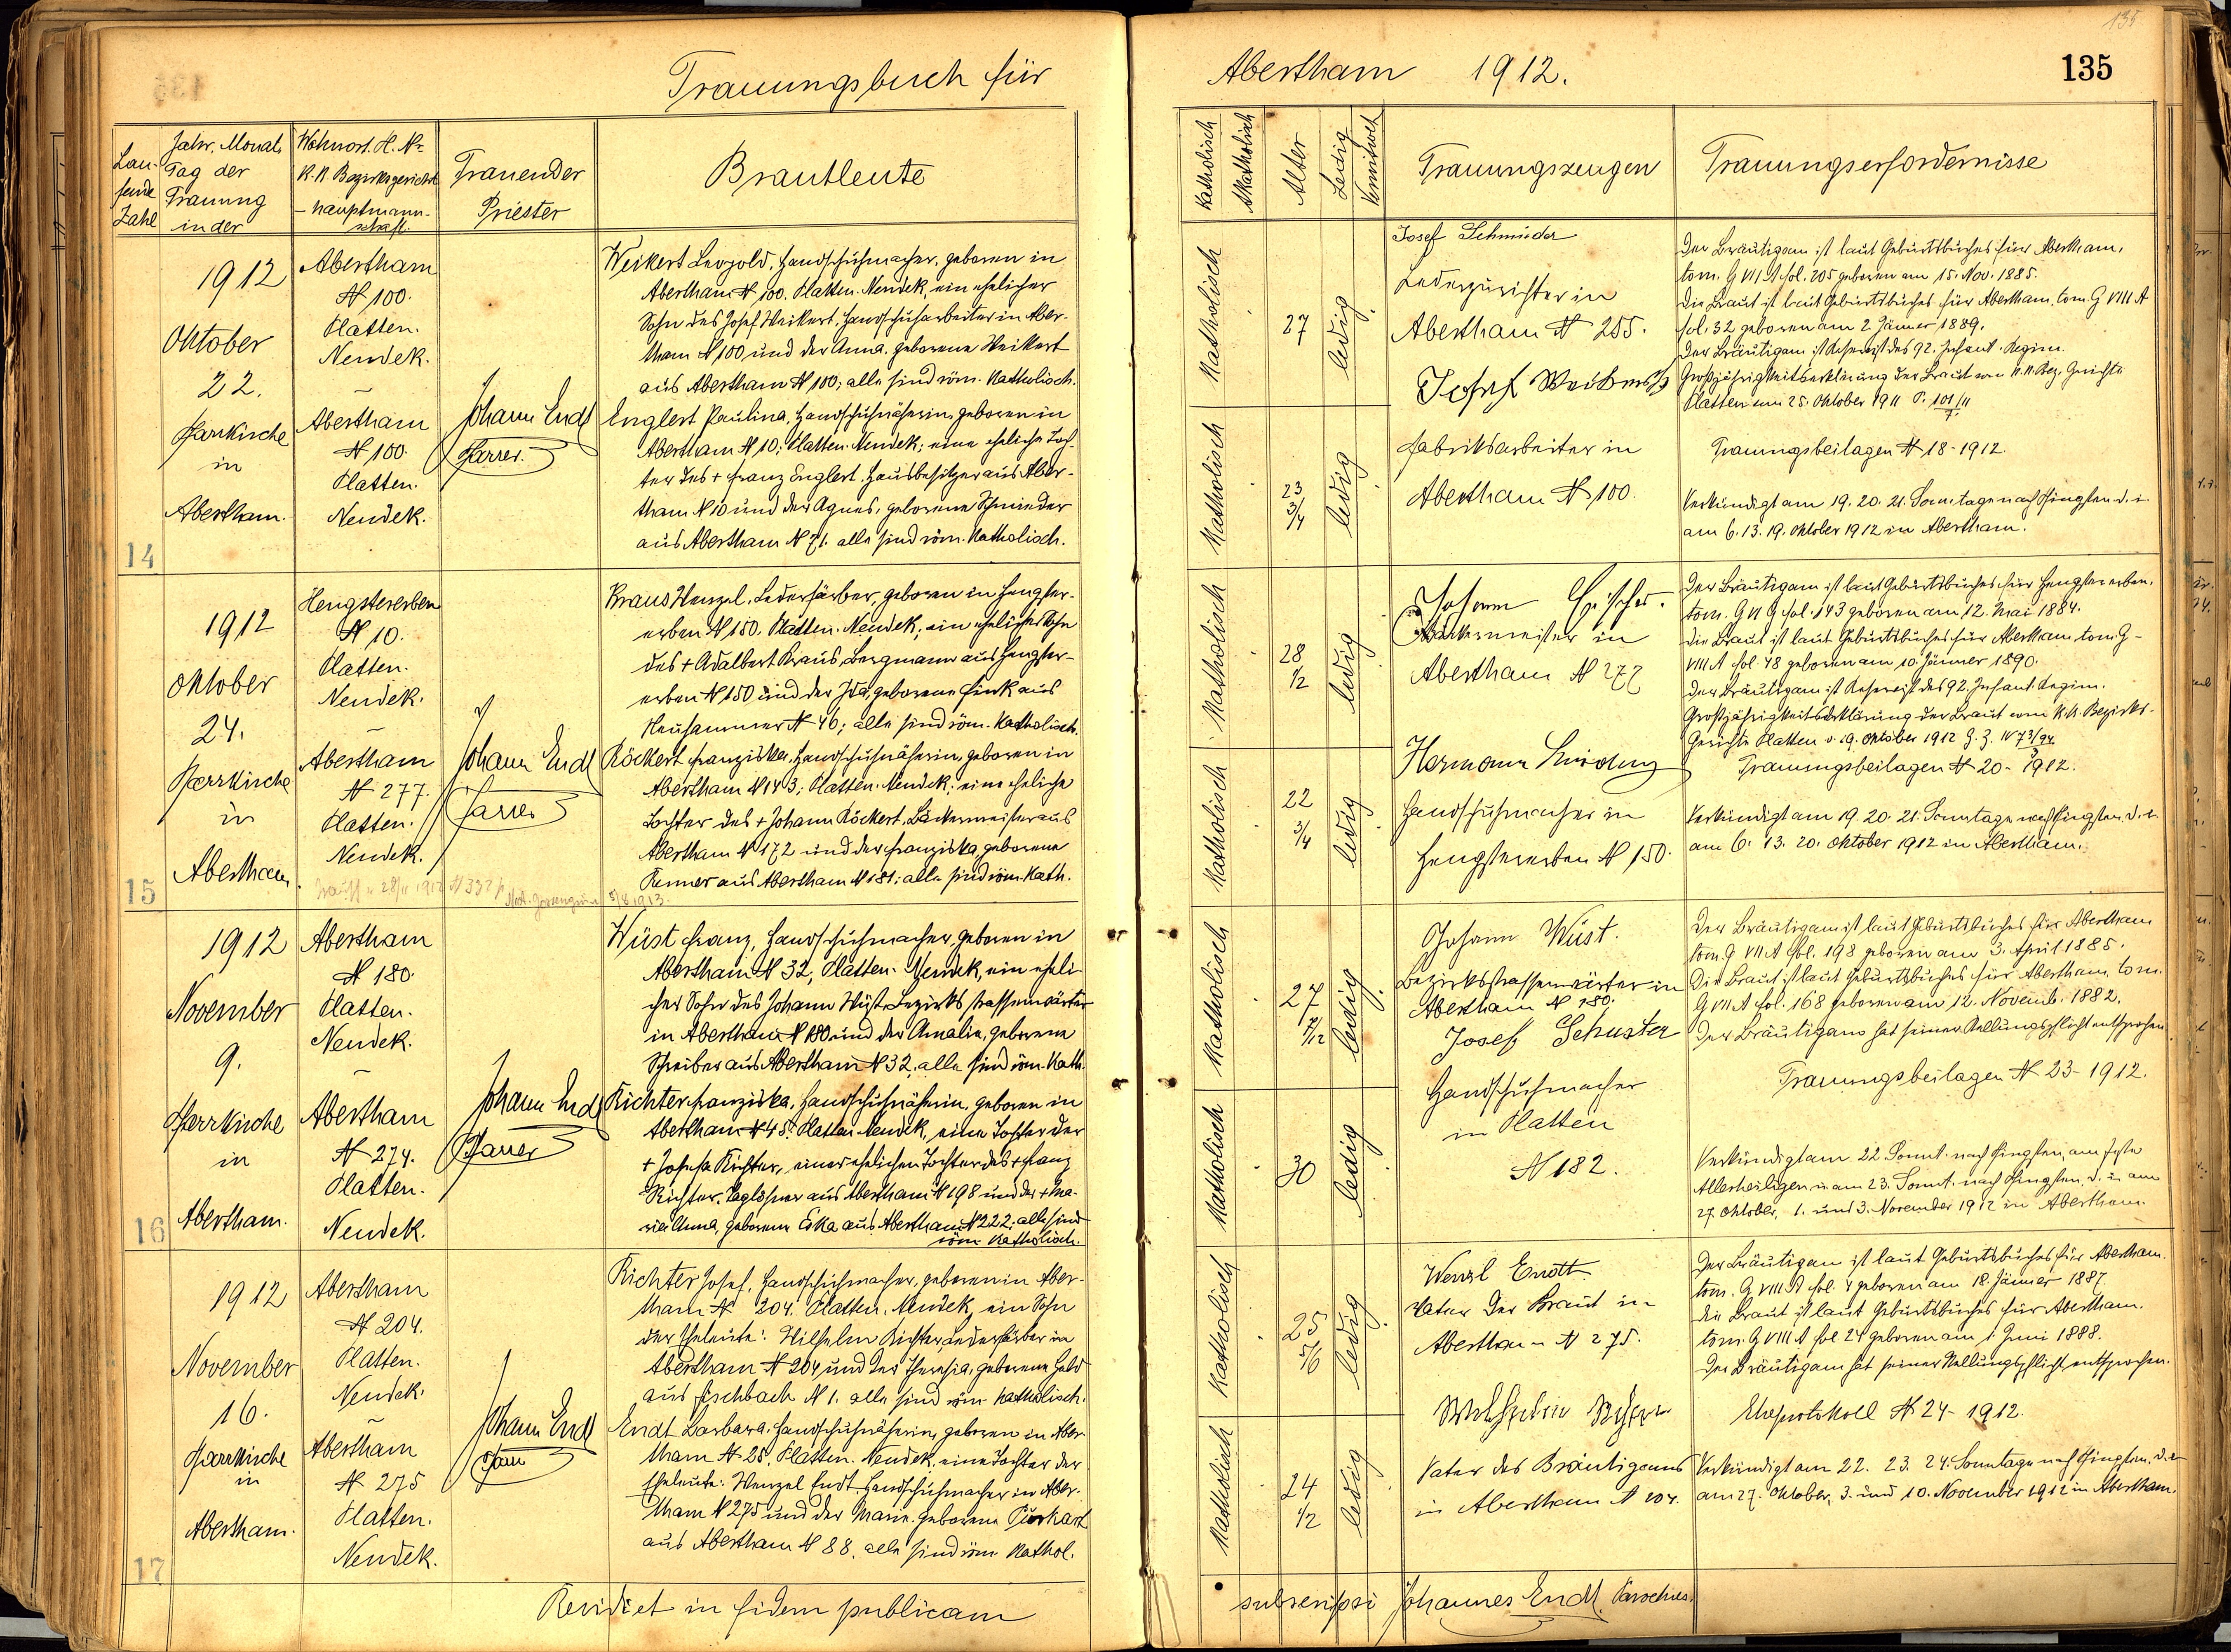 Trauungsbuch für
Laufende Zahl
Jahr. Monat
Tag der
Trauung
in der
Wohnort. H. Nr
K. K. Bezirksgericht
- hauptmann-
schaft.
Trauender
Priester
Brautleute
1912
Oktober
22.
Pfarrkirche
in
Abertham.
14
Abertham
N 100.
Platten.
Neudek.
–
Abertham
N 100.
Platten.
Neudek.
Johann Endt
Pfarrer.
Weikert Leopold, Handschuhmacher, geboren in
Abertham N 100. Platten. Neudek, ein ehelicher
Sohn des Josef Weikert, Handschuharbeiter in Aber-
tham N 100 und der Anna, geborene Weikert
aus Abertham N 100; alle sind röm. katholisch.
Englert Paulina, Handschuhnäherin, geboren in
Abertham N 10; Platten. Neudek; eine eheliche Toch-
ter des + Franz Englert, Hausbesitzer aus Aber-
tham N 10 und der Agnes, geborene Schmieder
aus Abertham N 71. alle sind röm. katholisch.
1912
Oktober
24.
Pfarrkirche
in
Abertham.
15
Hengstererben
N 10.
Platten.
Neudek.
–
Abertham
N 277.
Platten.
Neudek.
Johann Endt
Pfarrer
Kraus Wenzel, Lederfärber, geboren in Hengster-
erben N 150. Platten. Neudek; ein ehelicher Sohn
des + Adalbert Kraus, Bergmann aus Hengster-
erben N 150 und der Ida, geborene Fink aus
Neuhammer N 46; alle sind röm. katholisch.
Röckert Franziska, Handschuhnäherin, geboren in
Abertham N 143; Platten. Neudek; eine eheliche
Tochter des + Johann Röckert, Bäckermeister aus
Abertham N 172 und der Franziska, geborene
Renner aus Abertham N 181; alle sind röm. kath.
1912
November
9.
Pfarrkirche
in
Abertham.
16
Abertham
N 180.
Platten.
Neudek.
–
Abertham
N 274.
Platten.
Neudek.
Johann Endt
Pfarrer
Wüst Franz, Handschuhmacher, geboren in
Abertham N 32, Platten. Neudek, ein eheli-
cher Sohn des Johann Wüst, Bezirksstrassenwärter
in Abertham N 180 und der Amalia, geborene
Schreiber aus Abertham N 32, alle sind röm. kath.
Richter Franziska, Handschuhnäherin, geboren in
Abertham N 45. Platten. Neudek, eine Tochter der
+ Josefa Richter, einer ehelichen Tochter des + Franz
Richter, Taglöhner aus Abertham N 198 und der + Ma-
ria Anna, geborene Eska aus Abertham N 222; alle sind
röm. katholisch.
1912
November
16.
Pfarrkirche
in
Abertham.
17
Abertham
N 204.
Platten.
Neudek.
–
Abertham
N 275
Platten.
Neudek.
Johann Endt
Pfarrer
Richter Josef, Handschuhmacher, geboren in Aber-
tham N 204. Platten. Neudek, ein Sohn
der Eheleute: Wilhelm Richter, Lederfärber in
Abertham N 204 und der Theresia, geborene Held
aus Fischbach N 1. alle sind röm. katholisch.
Endt Barbara, Handschuhnäherin, geboren in Aber-
tham N 25, Platten. Neudek, eine Tochter der
Eheleute: Wenzel Endt, Handschuhmacher in Aber-
tham N 275 und der Marie, geborene Purkart
aus Abertham N 88. alle sind röm. kathol.
Revidiet in fidem publicam
Abertham 1912.
135
135
Katholisch
Akatholisch
Alter
Ledig
Verwitwet
Trauungszeugen
Trauungserfordernisse
Katholisch
27
ledig
Katholisch
23 3/4
ledig
Josef Schmieder
Lederzurichter in
Abertham N 255.
Josef
Fabriksarbeiter in
Abertham N 100.
Der Bräutigam ist laut Geburtsbuches für Abertham,
tom. G VII A fol. 205 geboren am 15. Nov. 1885.
Die Braut ist laut Geburtsbuches für Abertham, tom. G VIII A
fol. 32 geboren am 2. Jänner 1889.
Der Bräutigam ist Reservist des 92. Infant. Regim.
Großjährigkeitserklärung der Braut vom K. K. Bez. Gerichte
Platten am 25. Oktober 1911 P. 101/11
7
Trauungsbeilagen N 18-1912.
Verkündigt am 19. 20. 21. Sonntage nach Pfingsten, d. i.
am 6. 13. 19. Oktober 1912 in Abertham.
Katholisch
28 1/2
ledig
Katholisch
22 3/4
ledig
Johann
Bäckermeister in
Abertham N 277
Hermann
Handschuhmacher in
Hengstererben N 150.
Der Bräutigam ist laut Geburtsbuches für Hengstererben,
tom. G VI G fol. 143 geboren am 12. Mai 1884.
Die Braut ist laut Geburtsbuches für Abertham tom. G –
VIII A fol. 48 geboren am 10. Jänner 1890.
Der Bräutigam ist Reservist des 92. Infant. Regim.
Großjährigkeitserklärung der Braut vom K. K. Bezirks-
Gerichte Platten v. 19. Oktober 1912
Trauungsbeilagen N 20-1912.
Verkündigt am 19. 20. 21. Sonntage nach Pfingsten, d. i.
am 6. 13. 20. Oktober 1912 in Abertham.
Katholisch
27 7/12
ledig
Katholisch
30
ledig
Johann Wüst.
Bezirksstrassenwärter in
Abertham N 180.
Josef Schuster
Handschuhmacher
in Platten
N 182.
Der Bräutigam ist laut Geburtsbuches für Abertham
tom. G VII A fol. 198 geboren am 3. April 1885.
Die Braut ist laut Geburtsbuches für Abertham, tom.
G VII A fol. 168 geboren am 12. Novemb. 1882.
Der Bräutigam hat seiner Stellungspflicht entsprochen.
Trauungsbeilagen N 23-1912.
Verkündigt am 22. Sonnt. nach Pfingsten, am Feste
Allerheiligen u. am 23. Sonnt. nach Pfingsten, d. i. am
27. Oktober, 1. und 3. November 1912 in Abertham.
Katholisch
25 5/6
ledig
Katholisch
24 1/2
ledig
Wenzl Endt
Vater der Braut in
Abertham N 275.
Wilhelm Richter
Vater des Bräutigams
in Abertham N 204.
Der Bräutigam ist laut Geburtsbuches für Abertham.
tom. G VIII A fol. 4 geboren am 18. Jänner 1887.
Die Braut ist laut Geburtsbuches für Abertham.
tom. G VIII A fol 24 geboren am 1. Juni 1888.
Der Bräutigam hat seiner Stellungspflicht entsprochen.
Eheprotokoll N 24-1912.
Verkündigt am 22. 23. 24. Sonntage nach Pfingsten, d. i.
am 27. Oktober, 3. und 10. November 1912 in Abertham.
subscripsi Johannes Endt, Parochus.